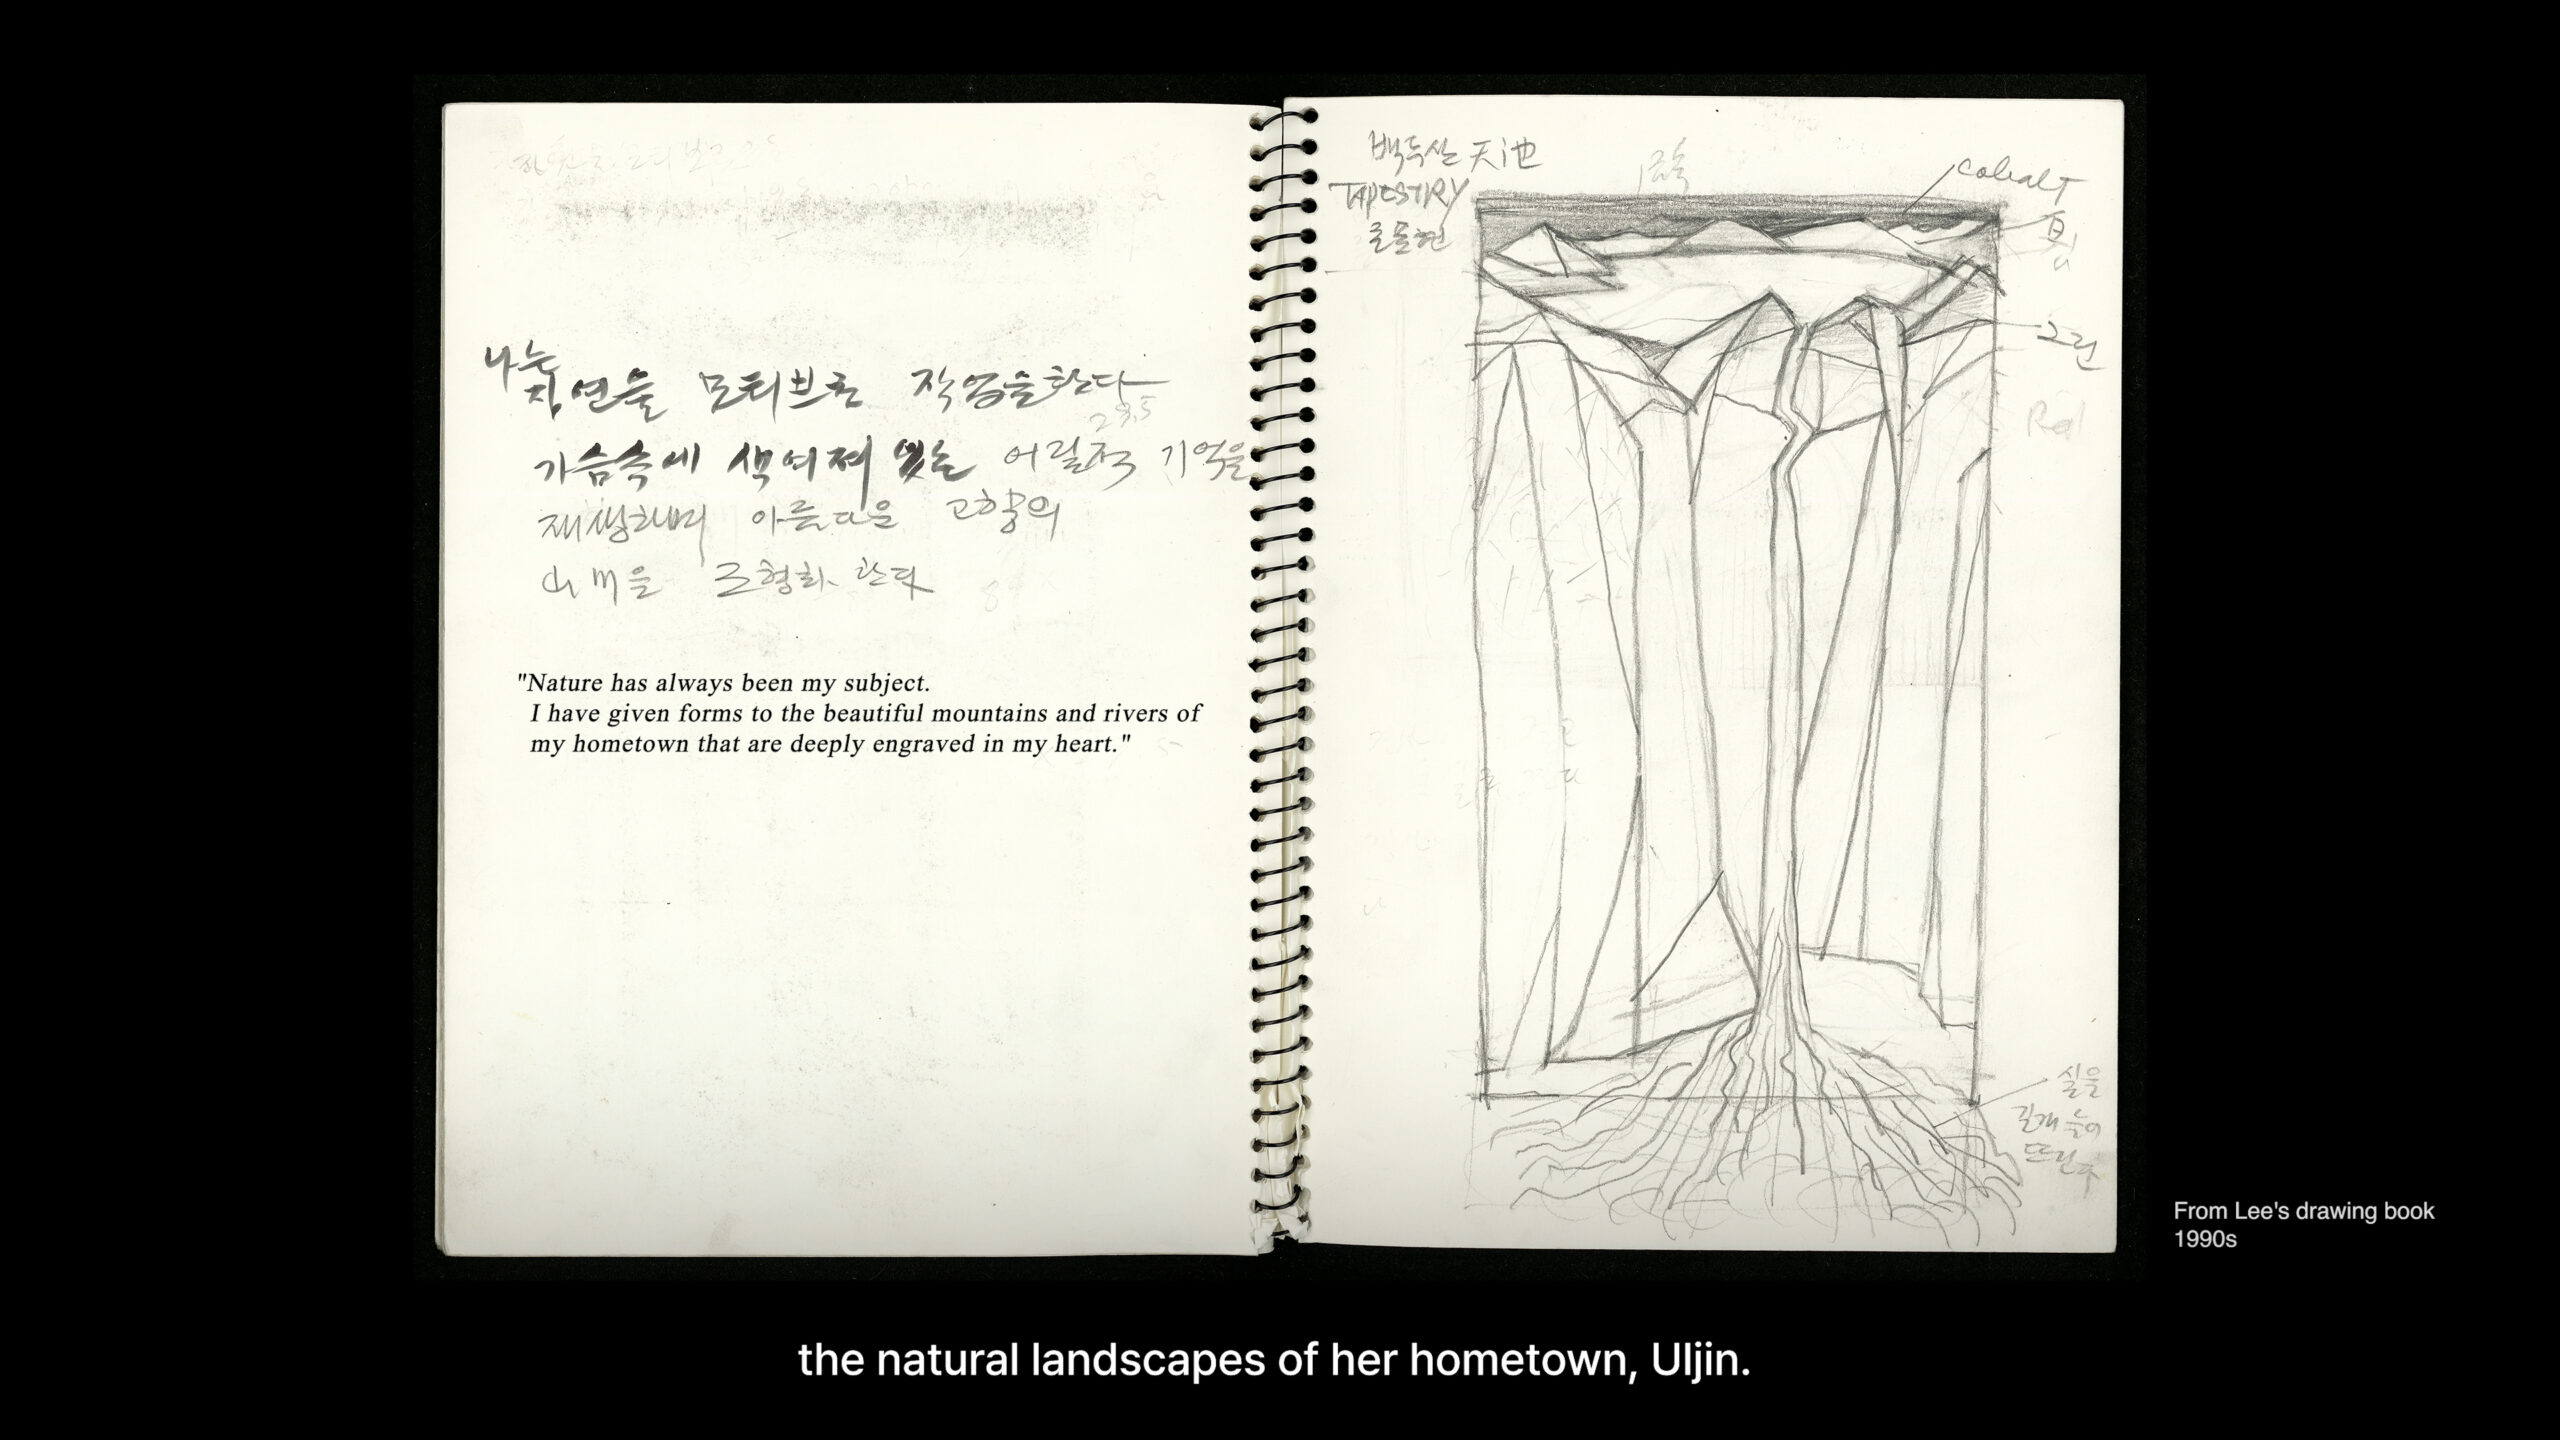 나는
자연을 모티브로 작업을 한다
가슴속에 색여져 있는 어릴적 기억을
재생하며 아름다운 고향의
山川을 조형화 한다
"Nature has always been my subject.
I have given forms to the beautiful mountains and rivers of
my hometown that are deeply engraved in my heart."
백두산 天池
TAPESTRY
로 표현
cobalt
그린
Red
실을
길게 늘어
뜨린다
From Lee's drawing book
1990s
the natural landscapes of her hometown, Uljin.